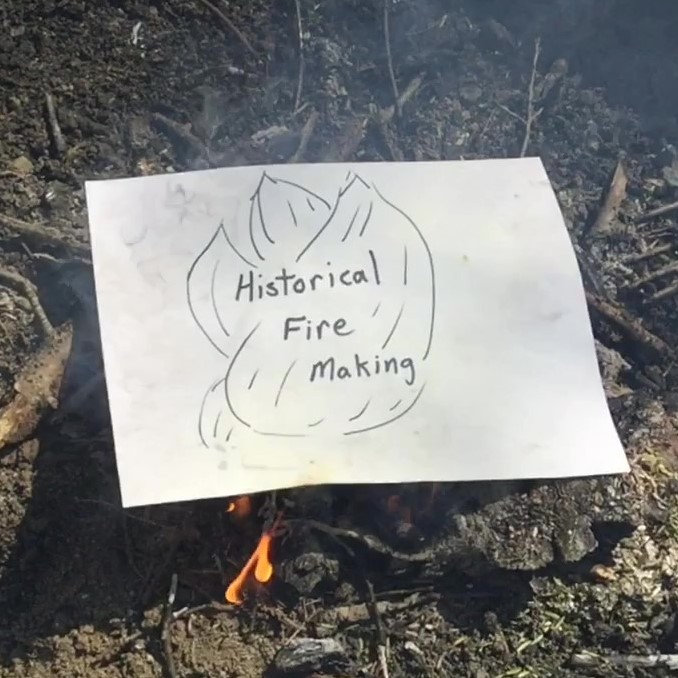 Historical
Fire
Making